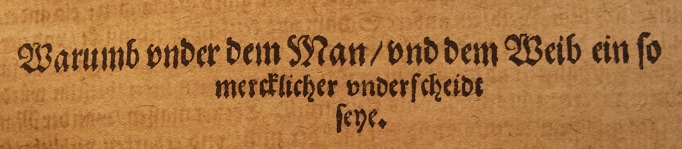 Warumb vnder dem Man/ vnd dem Weib ein so
mercklicher vnderscheidt
seye.